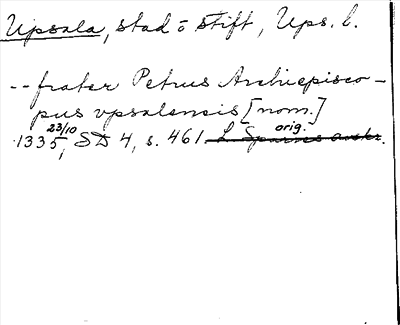 Upsala, stad o stift, Ups. l.
-- frater Petrus Archiepisco-
pus vpsalensis [nom.]
1335 23/10, SD 4, s. 461 orig.